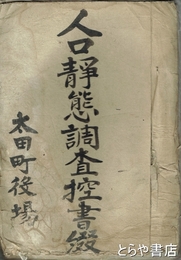 人口靜態調査控書綴
太田町役場
とらや書店